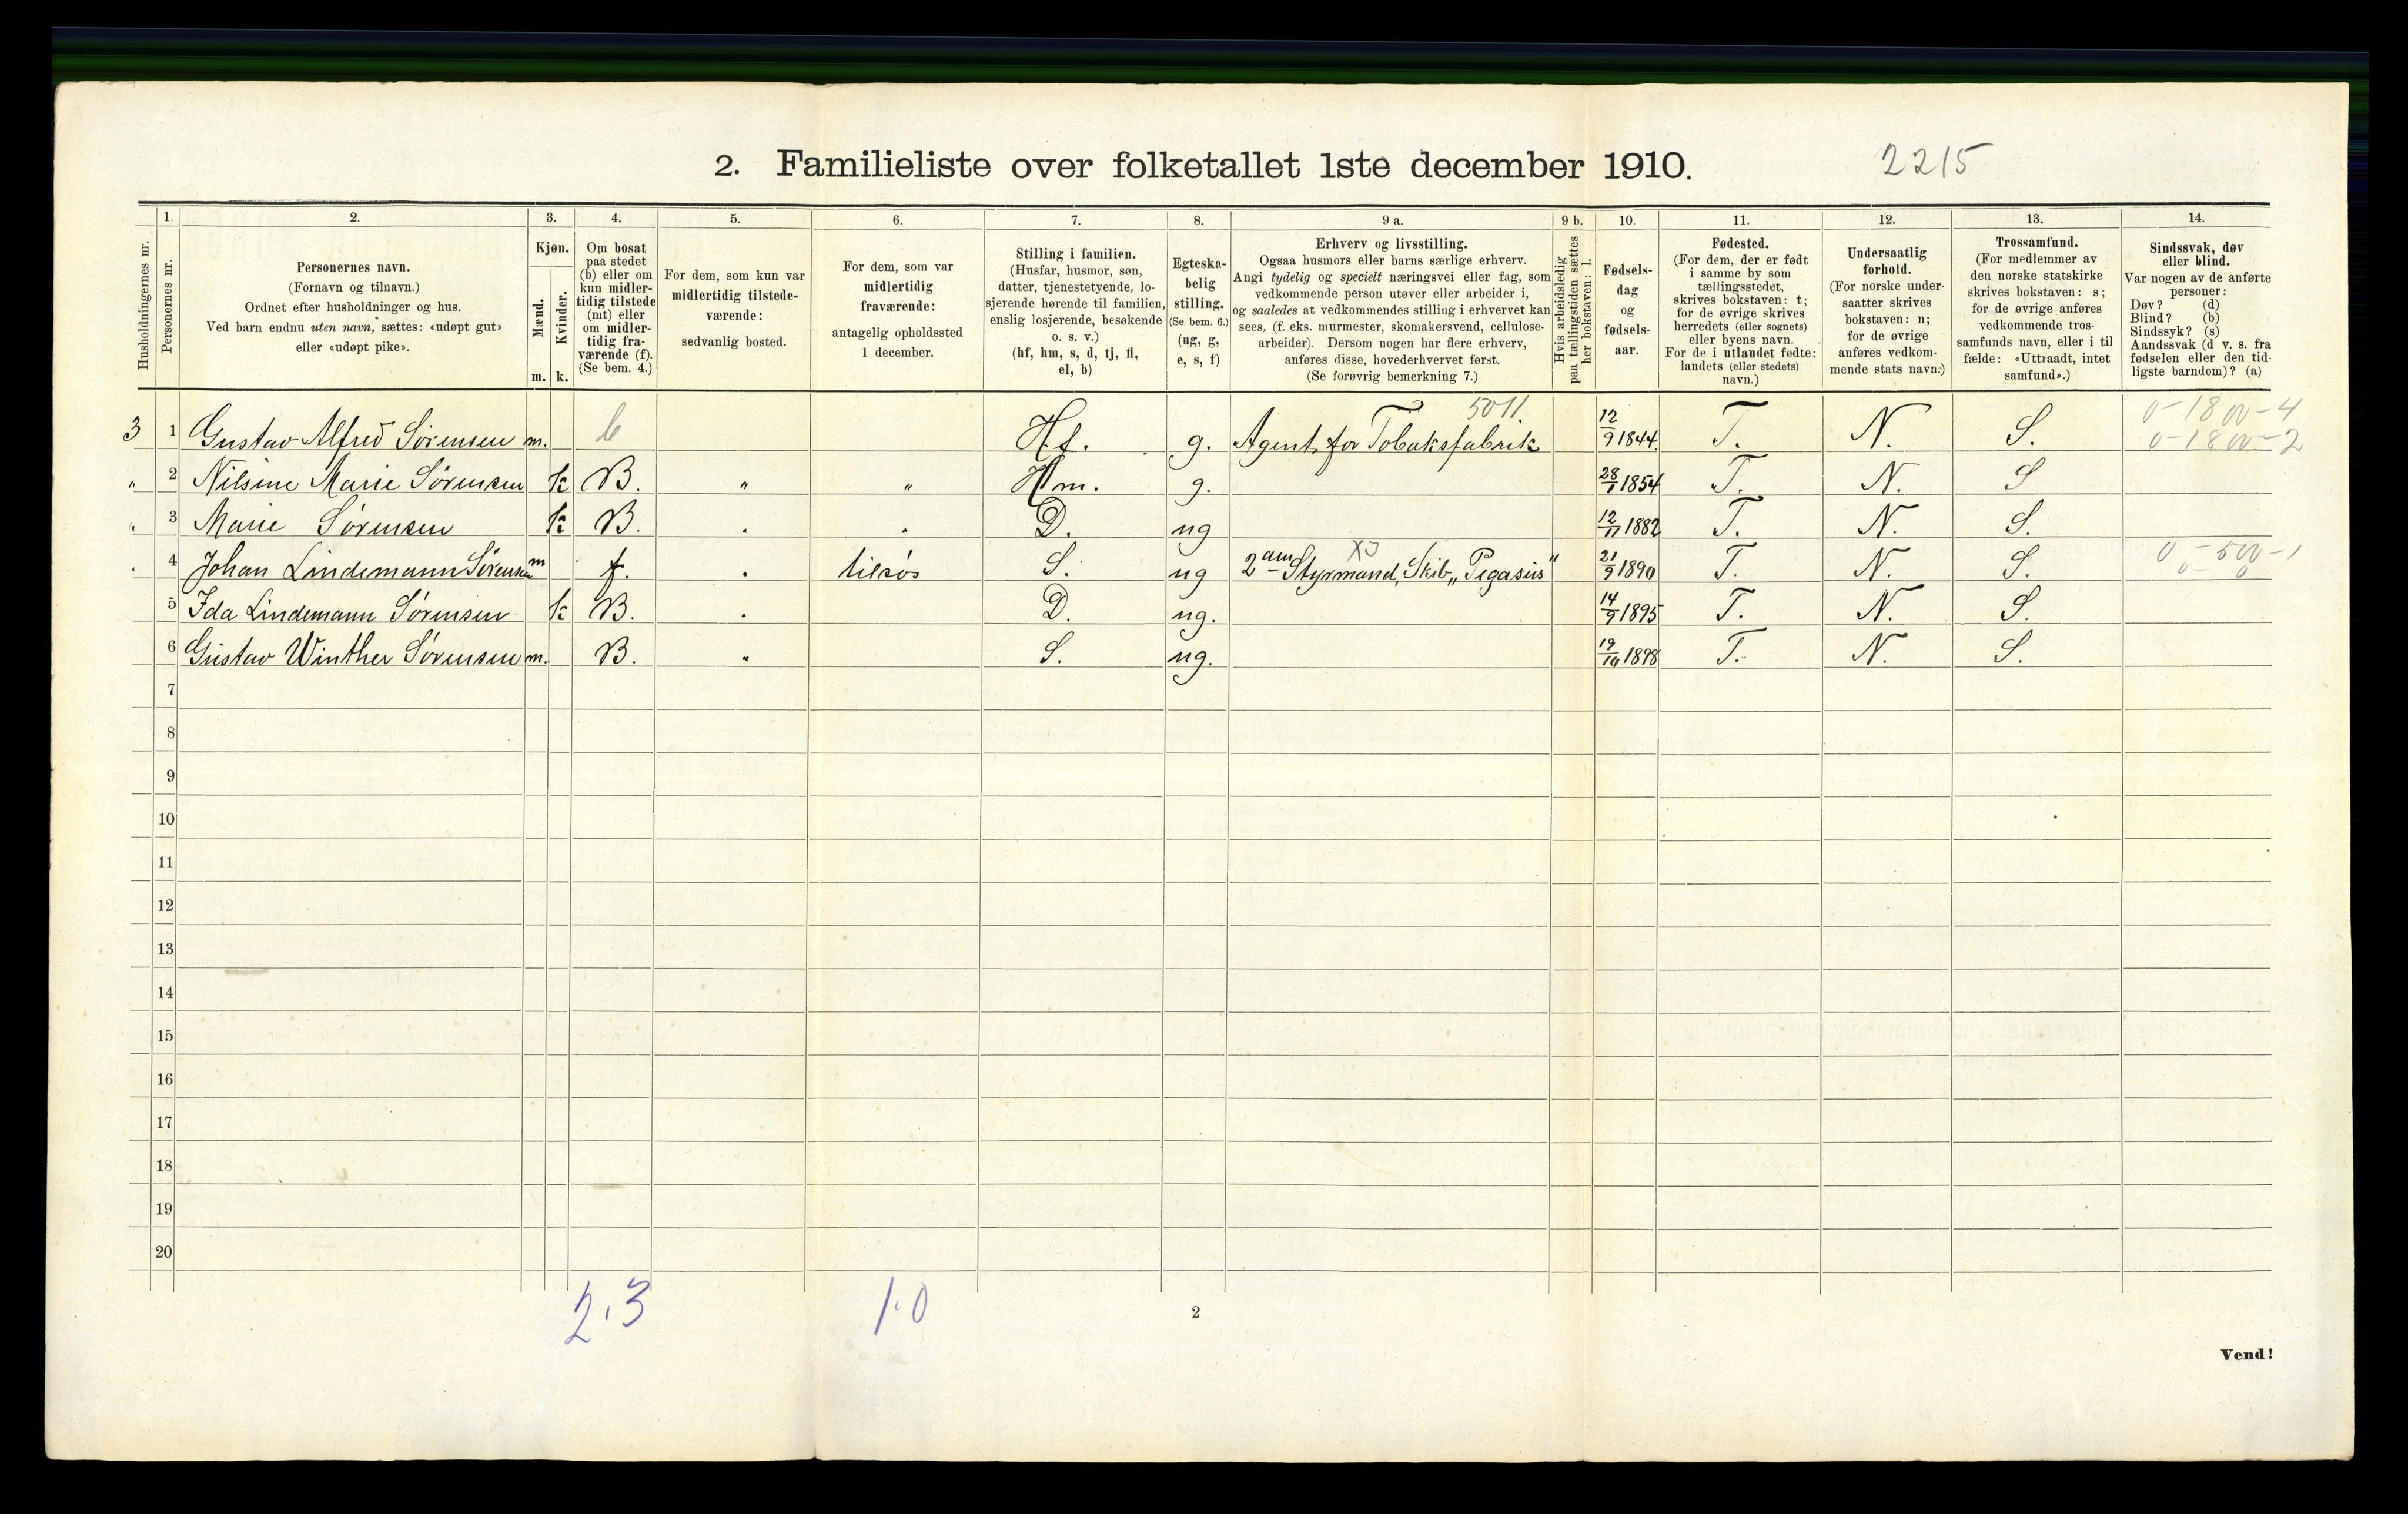 2. Familieliste over folketallet 1ste december 1910.
2215
1. 2. 3. 4. 5. 6. 7. 8. 9 a. 9 b. 10. 11. 12. 13. 14.
Husholdningernes nr.
Personernes nr.
Personernes navn.
(Fornavn og tilnavn.)
Ordnet efter husholdninger og hus.
Ved barn endnu uten navn, sættes: «udøpt gut»
eller «udøpt pike».
Kjøn.
Mænd.
Kvinder.
m. k.
Om bosat
paa stedet
(b) eller om
kun midler-
tidig tilstede
(mt) eller
om midler-
tidig fra-
værende (f).
(Se bem. 4.)
For dem, som kun var
midlertidig tilstede-
værende:
sedvanlig bosted.
For dem, som var
midlertidig
fraværende:
antagelig opholdssted
1 december.
Stilling i familien.
(Husfar, husmor, søn,
datter, tjenestetyende, lo-
sjerende hørende til familien,
enslig losjerende, besøkende
o. s. v.)
(hf, hm, s, d, tj, fl,
el, b)
Egteska-
belig
stilling.
(Se bem. 6.)
(ug, g,
e, s, f)
Erhverv og livsstilling.
Ogsaa husmors eller barns særlige erhverv.
Angi tydelig og specielt næringsvei eller fag, som
vedkommende person utøver eller arbeider i,
og saaledes at vedkommendes stilling i erhvervet kan
sees, (f. eks. murmester, skomakersvend, cellulose-
arbeider). Dersom nogen har flere erhverv,
anføres disse, hovederhvervet først.
(Se forøvrig bemerkning 7.)
Hvis arbeidsledig
paa tællingstiden sættes
her bokstaven: l.
Fødsels-
dag
og
fødsels-
aar.
Fødested.
(For dem, der er født
i samme by som
tællingsstedet,
skrives bokstaven: t;
for de øvrige skrives
herredets (eller sognets)
eller byens navn.
For de i utlandet fødte:
landets (eller stedets)
navn.)
Undersaatlig
forhold.
(For norske under-
saatter skrives
bokstaven: n;
for de øvrige
anføres vedkom-
mende stats navn.)
Trossamfund.
(For medlemmer av
den norske statskirke
skrives bokstaven: s;
for de øvrige anføres
vedkommende tros-
samfunds navn, eller i til
fælde: «Uttraadt, intet
samfund».)
Sindssvak, døv
eller blind.
Var nogen av de anførte
personer:
Døv? (d)
Blind? (b)
Sindssyk? (s)
Aandssvak (d v. s. fra
fødselen eller den tid-
ligste barndom)? (a)
5011
0-1800-4
3 1 Gustav Alfred Sörensen m. b H.f. g. Agent for Tobaksfabrik 12/9 1844 T. N. S. 0-1800-2
" 2 Nilsine Marie Sörensen k B. " " Hm. g. 28/1 1854 T. N. S
" 3 Marie Sörensen k B. " " D. ug 12/11 1882 T. N. S.
" 4 Johan Lindemann Sörensen m f. " tilsös S. ug 2den Styrmand, Skib „Pegasus" 21/9 1890 T. N. S. 0-500-1
5 Ida Lindemann Sörensen k B. " D. ug. 14/9 1895 T. N. S.
6 Gustav Winther Sörensen m. B. " S. ug. 19/10 1898 T. N. S.
7
8
9
10
11
12
13
14
15
16
17
18
19
20
2.3 1.0
2
Vend!